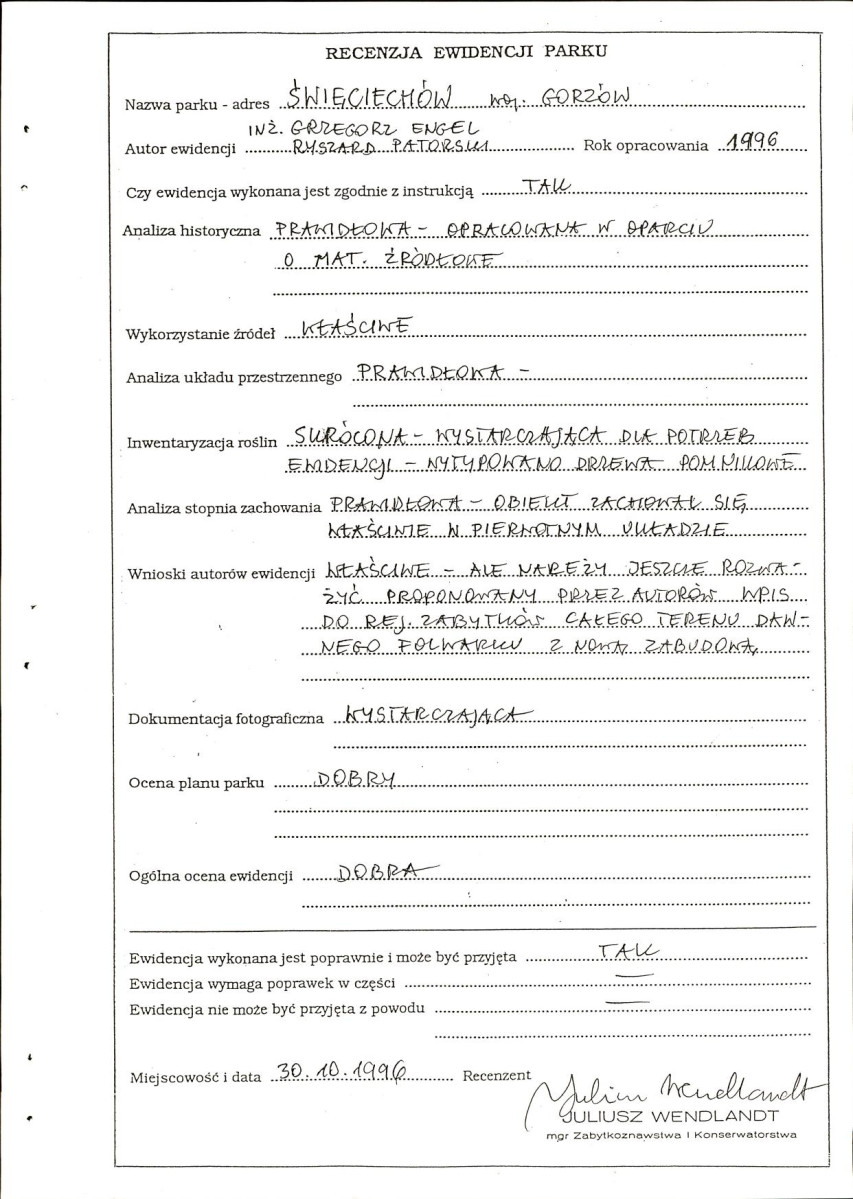 RECENZJA EWIDENCJI PARKU
Nazwa parku - adres ŚWIĘCIECHÓW woj. GORZÓW
INŻ. GRZEGORZ ENGEL
Autor ewidencji RYSZARD PATORSKI Rok opracowania 1996
Czy ewidencja wykonana jest zgodnie z instrukcją TAK
Analiza historyczna PRAWIDŁOWA - OPRACOWANA W OPARCIU
O MAT. ŹRÓDŁOWE
Wykorzystanie źródeł WŁAŚCIWE
Analiza układu przestrzennego PRAWIDŁOWA -
Inwentaryzacja roślin SKRÓCONA - WYSTARCZAJĄCA DLA POTRZEB
EWIDENCJI - WYTYPOWANO DRZEWA POMNIKOWE
Analiza stopnia zachowania PRAWIDŁOWA - OBIEKT ZACHOWAŁ SIĘ
WŁAŚCIWIE W PIERWOTNYM UKŁADZIE
Wnioski autorów ewidencji WŁAŚCIWE - ALE NAREŻY JESZCZE ROZWA-
ŻYĆ PROPONOWANY PRZEZ AUTORÓW WPIS
DO REJ. ZABYTKÓW CAŁEGO TERENU DAW-
NEGO FOLWARKU Z NOWĄ ZABUDOWĄ
Dokumentacja fotograficzna WYSTARCZAJĄCA
Ocena planu parku DOBRY
Ogólna ocena ewidencji DOBRA
Ewidencja wykonana jest poprawnie i może być przyjęta TAK
Ewidencja wymaga poprawek w części —
Ewidencja nie może być przyjęta z powodu —
Miejscowość i data 30.10.1996 Recenzent
Juliusz Wendlandt
JULIUSZ WENDLANDT
mgr Zabytkoznawstwa i Konserwatorstwa